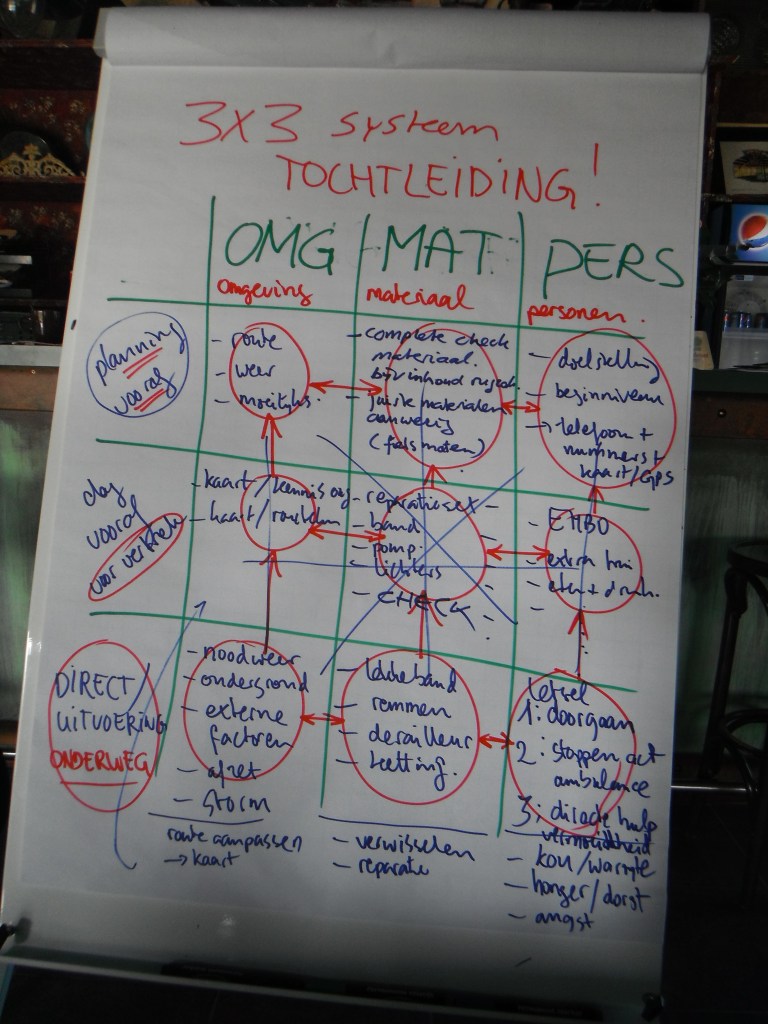 3X3 systeem
TOCHTLEIDING!
OMG MAT PERS
omgeving materiaal personen.
planning
vooraf
- route
- weer
-
- complete check
materiaal.
bijv inhoud
- juiste materialen
aanwezig
(fietsmaten)
- doelstelling
- beginniveau
-> telefoon +
nummers +
kaart/GPS
dag
vooraf
voor vertrek
- kaart/kennis
- kaart/
- reparatieset
- band
- pomp
- lichters
- CHECK
- EHBO
- extra
- eten + drink.
-
DIRECT/
UITVOERING
ONDERWEG
- noodweer
- ondergrond
- externe
factoren
- afzet
- storm
route aanpassen
-> kaart
- lekkeband
- remmen
- derailleur
- ketting.
- verwisselen
- reparatie
letsel
1: doorgaan
2: stoppen act
ambulance
3: directe hulp
vermoeidheid
- kou/warmte
- honger/dorst
- angst